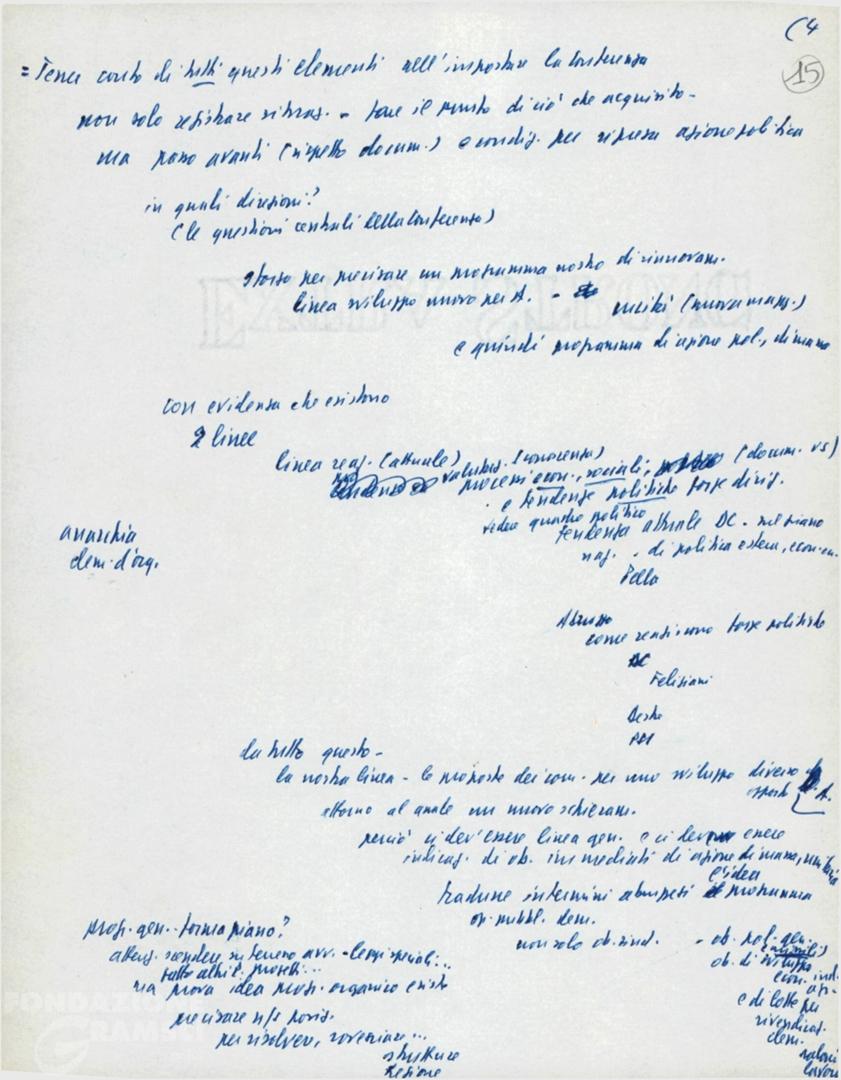 (4
15
= Tener conto di tutti questi elementi nell'impostare la conferenza
non solo registrare – fare il punto di ciò che acquisito –
ma passo avanti (rispetto docum.) e condiz. per ripresa azione politica
in quali direzioni?
(le questioni centrali della conferenza)
sforzo per precisare un programma nostro di rinnovam.
linea sviluppo nuovo per A. – unità (nuova magg.)
e quindi programma di azione pol., di massa
con evidenza che esistono
2 linee
linea reaz. (attuale) valutaz. (conoscenza)
processi econ., sociali, (docum. vs)
e tendenze politiche forze dirig.
vedere quadro politico
tendenza attuale DC. sul piano
naz. di politica estera, econ.
Pella
anarchia
elem. d'org.
Abruzzo
come reagiscono forze politiche
DC
Feliziani
Destre
PSI
da tutto questo –
la nostra linea – le proposte dei com. per uno sviluppo diverso
opposto A.
attorno al quale un nuovo schieram.
perciò ci dev'essere linea gen. e ci devono essere
indicaz. di ob. immediati di azione di massa, unitaria
c'è idea
tradurre in termini abruzzesi il programma
op. pubbl. dem.
non solo ob. sind. – ob. pol. gen.
ob. di sviluppo
econ. ind.
agr.
e di lotte per
rivendicaz.
dem.
salari
lavoro
prog. gen. – forma piano?
attenz. scendere su terreno avv. – leggi speciali...
tutto altri progetti...
ma prova idea prog. organico esiste
precisare ns posiz.
per risolvere, rovesciare...
strutture
regione
FONDAZIONE
GRAMSCI